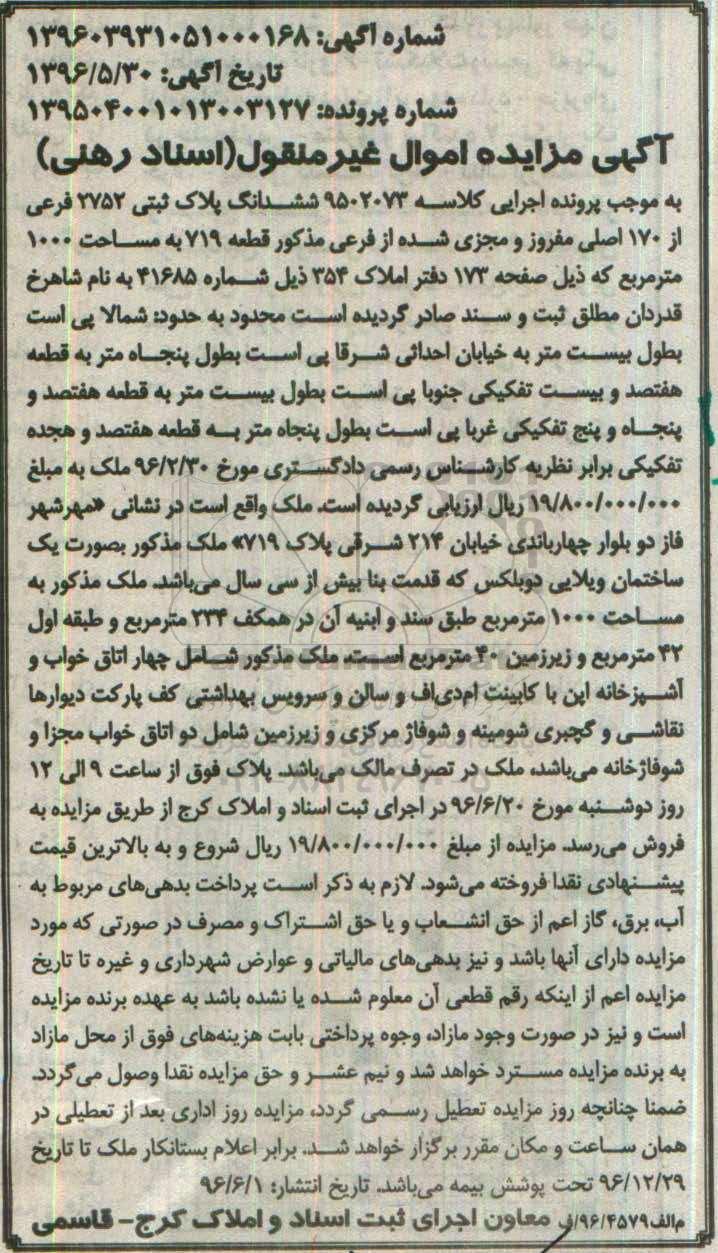 شماره آگهی: ۱۳۹۶۰۳۹۳۱۰۵۱۰۰۰۱۶۸
تاریخ آگهی: ۱۳۹۶/۵/۳۰
شماره پرونده: ۱۳۹۵۰۴۰۰۱۰۱۳۰۰۳۱۲۷
آگهی مزایده اموال غیرمنقول(اسناد رهنی)
به موجب پرونده اجرایی کلاسه ۹۵۰۲۰۷۳ ششدانگ پلاک ثبتی ۲۷۵۲ فرعی
از ۱۷۰ اصلی مفروز و مجزی شده از فرعی مذکور قطعه ۷۱۹ به مساحت ۱۰۰۰
مترمربع که ذیل صفحه ۱۷۳ دفتر املاک ۳۵۴ ذیل شماره ۴۱۶۸۵ به نام شاهرخ
قدردان مطلق ثبت و سند صادر گردیده است محدود به حدود: شمالا پی است
بطول بیست متر به خیابان احداثی شرقا پی است بطول پنجاه متر به قطعه
هفتصد و بیست تفکیکی جنوبا پی است بطول بیست متر به قطعه هفتصد و
پنجاه و پنج تفکیکی غربا پی است بطول پنجاه متر به قطعه هفتصد و هجده
تفکیکی برابر نظریه کارشناس رسمی دادگستری مورخ ۹۶/۲/۳۰ ملک به مبلغ
۱۹/۸۰۰/۰۰۰/۰۰۰ ریال ارزیابی گردیده است. ملک واقع است در نشانی «مهرشهر
فاز دو بلوار چهارباندی خیابان ۲۱۴ شرقی پلاک ۷۱۹» ملک مذکور بصورت یک
ساختمان ویلایی دوبلکس که قدمت بنا بیش از سی سال می‌باشد. ملک مذکور به
مساحت ۱۰۰۰ مترمربع طبق سند و ابنیه آن در همکف ۲۳۴ مترمربع و طبقه اول
۴۲ مترمربع و زیرزمین ۴۰ مترمربع است. ملک مذکور شامل چهار اتاق خواب و
آشپزخانه اپن با کابینت ام‌دی‌اف و سالن و سرویس بهداشتی کف پارکت دیوارها
نقاشی و گچبری شومینه و شوفاژ مرکزی و زیرزمین شامل دو اتاق خواب مجزا و
شوفاژخانه می‌باشد، ملک در تصرف مالک می‌باشد. پلاک فوق از ساعت ۹ الی ۱۲
روز دوشنبه مورخ ۹۶/۶/۲۰ در اجرای ثبت اسناد و املاک کرج از طریق مزایده به
فروش می‌رسد. مزایده از مبلغ ۱۹/۸۰۰/۰۰۰/۰۰۰ ریال شروع و به بالاترین قیمت
پیشنهادی نقدا فروخته می‌شود. لازم به ذکر است پرداخت بدهی‌های مربوط به
آب، برق، گاز اعم از حق انشعاب و یا حق اشتراک و مصرف در صورتی که مورد
مزایده دارای آنها باشد و نیز بدهی‌های مالیاتی و عوارض شهرداری و غیره تا تاریخ
مزایده اعم از اینکه رقم قطعی آن معلوم شده یا نشده باشد به عهده برنده مزایده
است و نیز در صورت وجود مازاد، وجوه پرداختی بابت هزینه‌های فوق از محل مازاد
به برنده مزایده مسترد خواهد شد و نیم عشر و حق مزایده نقدا وصول می‌گردد.
ضمنا چنانچه روز مزایده تعطیل رسمی گردد، مزایده روز اداری بعد از تعطیلی در
همان ساعت و مکان مقرر برگزار خواهد شد. برابر اعلام بستانکار ملک تا تاریخ
۹۶/۱۲/۲۹ تحت پوشش بیمه می‌باشد. تاریخ انتشار: ۹۶/۶/۱
م‌الف۹۶/۴۵۷۹/ف معاون اجرای ثبت اسناد و املاک کرج- قاسمی